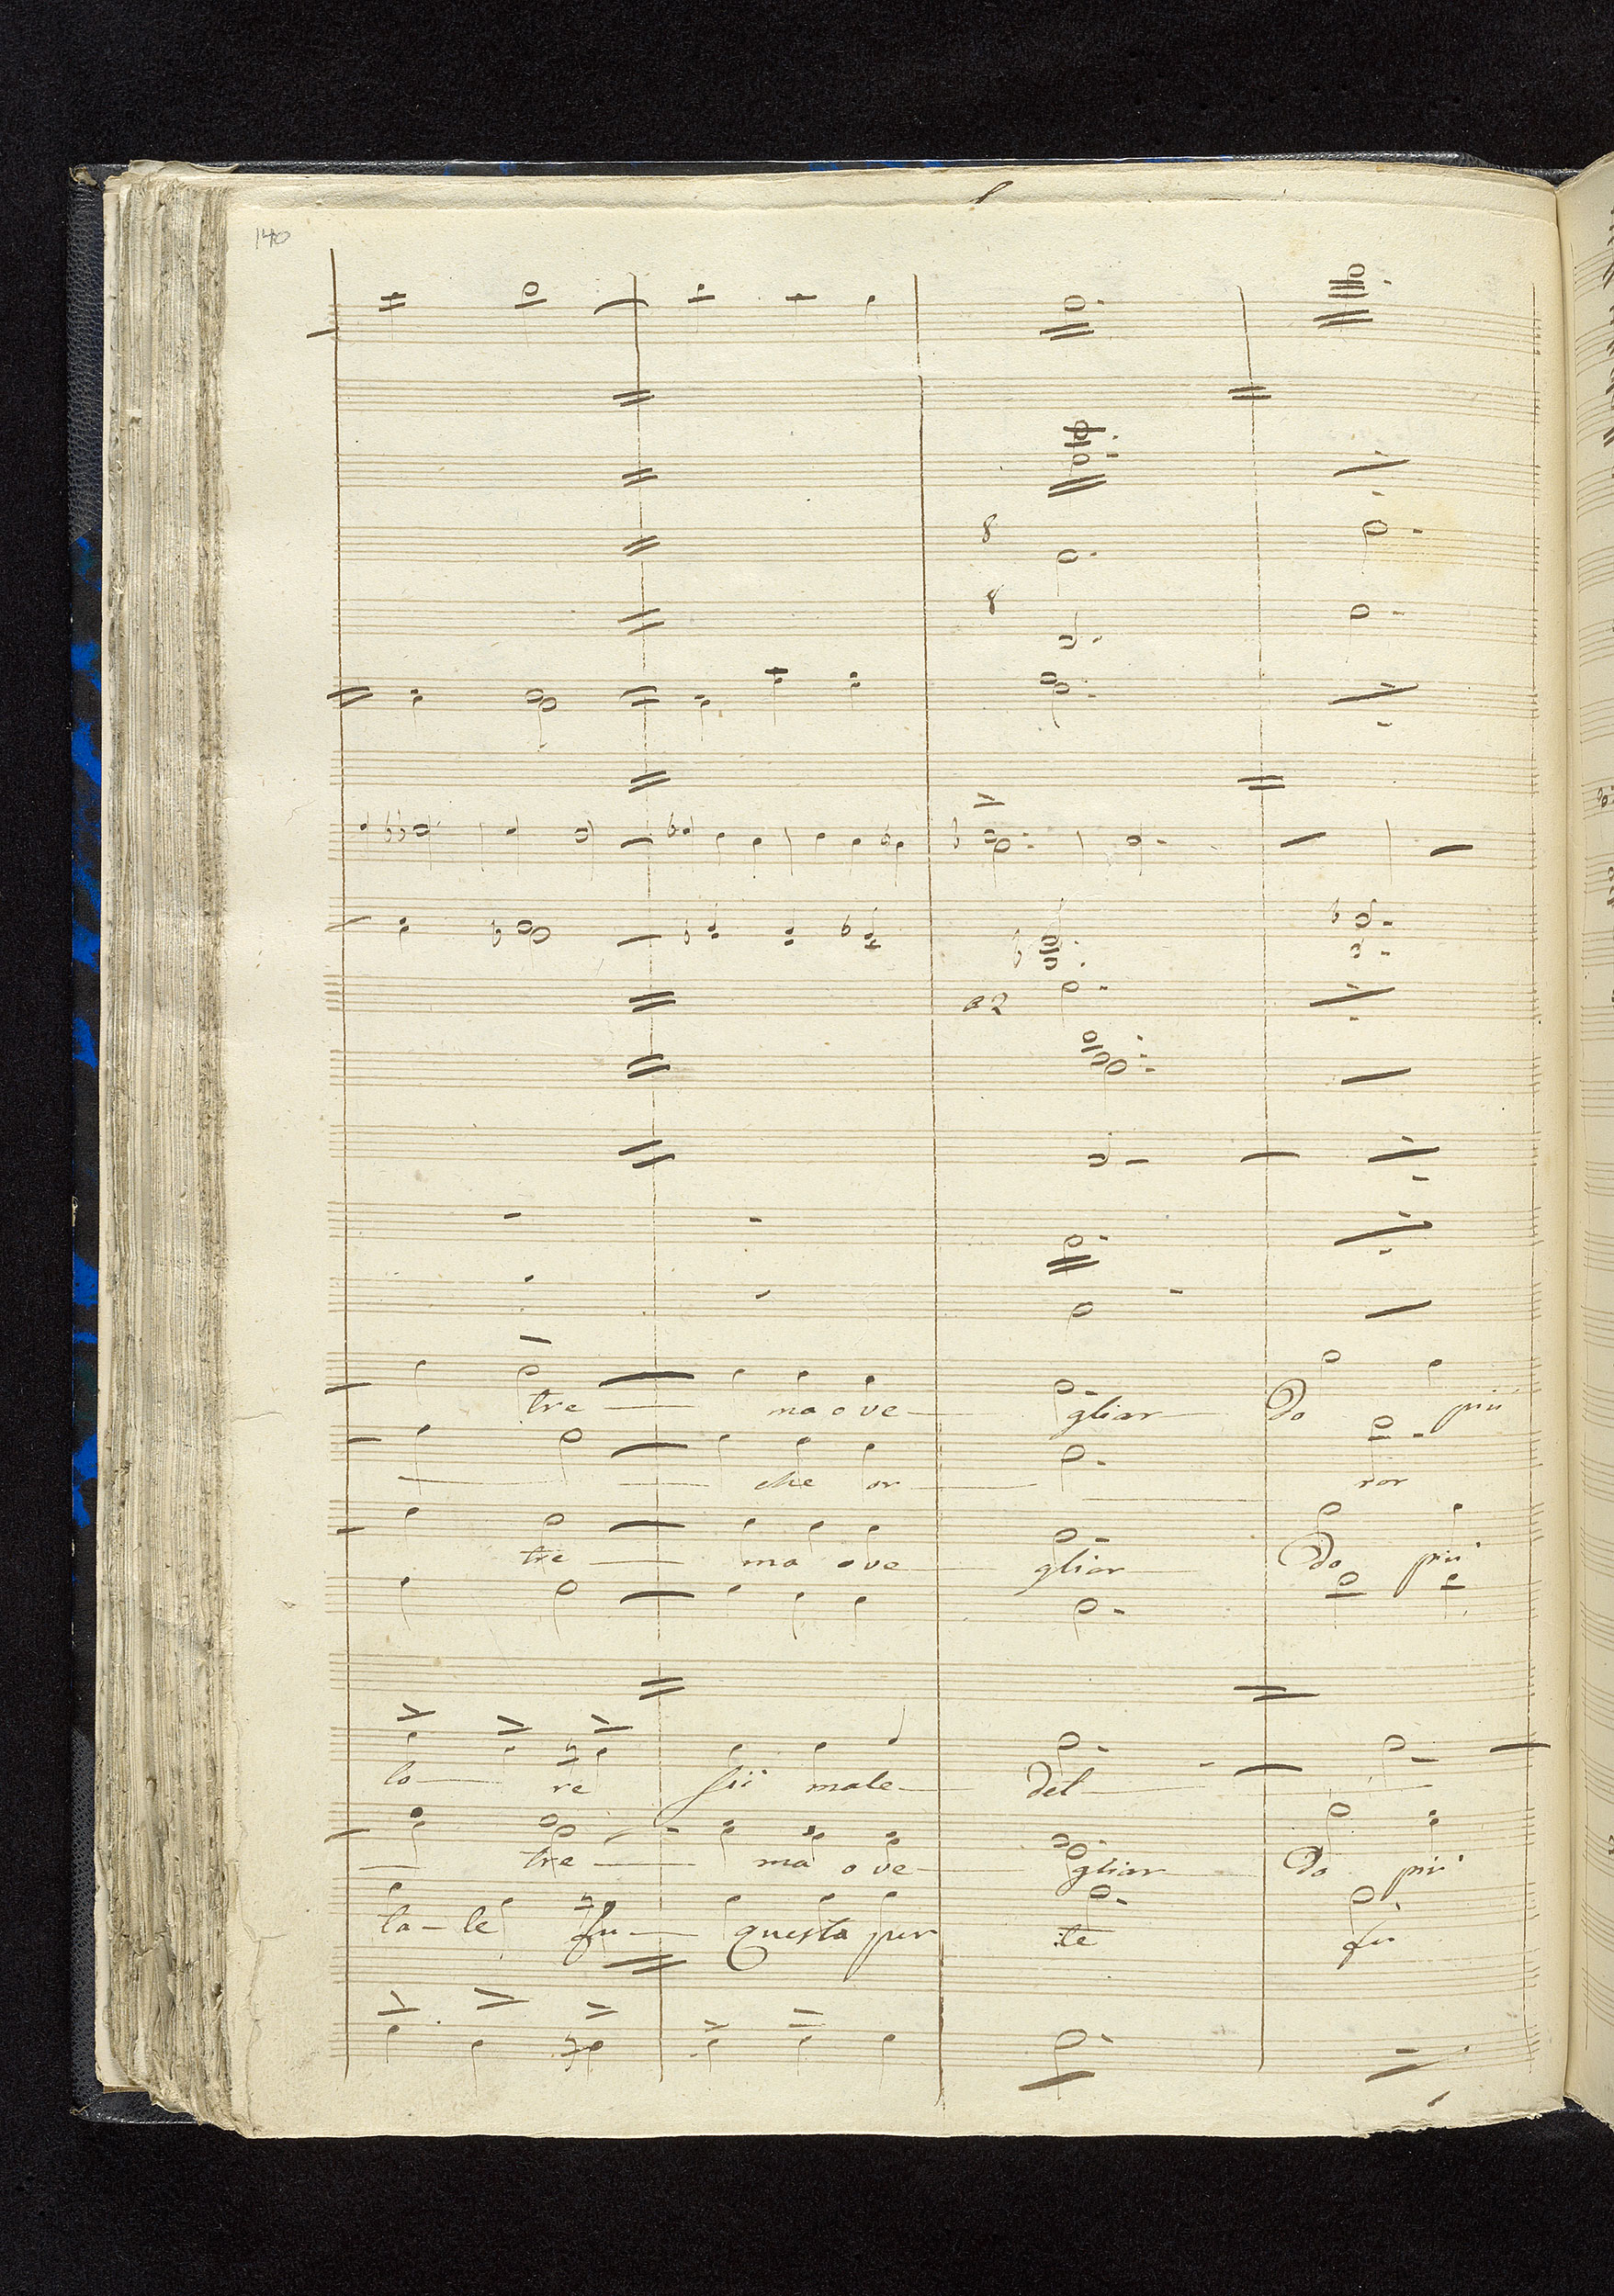 140
8
8
a2
tre — ma o ve — gliar — Do più
— — che or — — ror
tre — ma o ve — gliar — Do più
lo — re sii male — Del —
— tre — ma o ve — gliar Do più
ta - le fu — questa per te fu